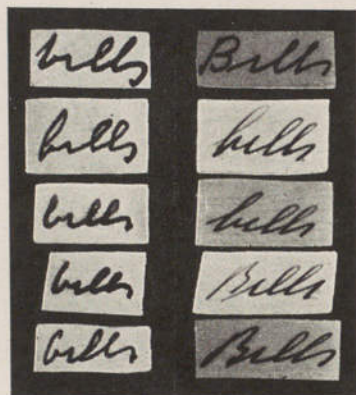 bills
bills
bills
bills
bills
Bills
bills
bills
Bills
Bills